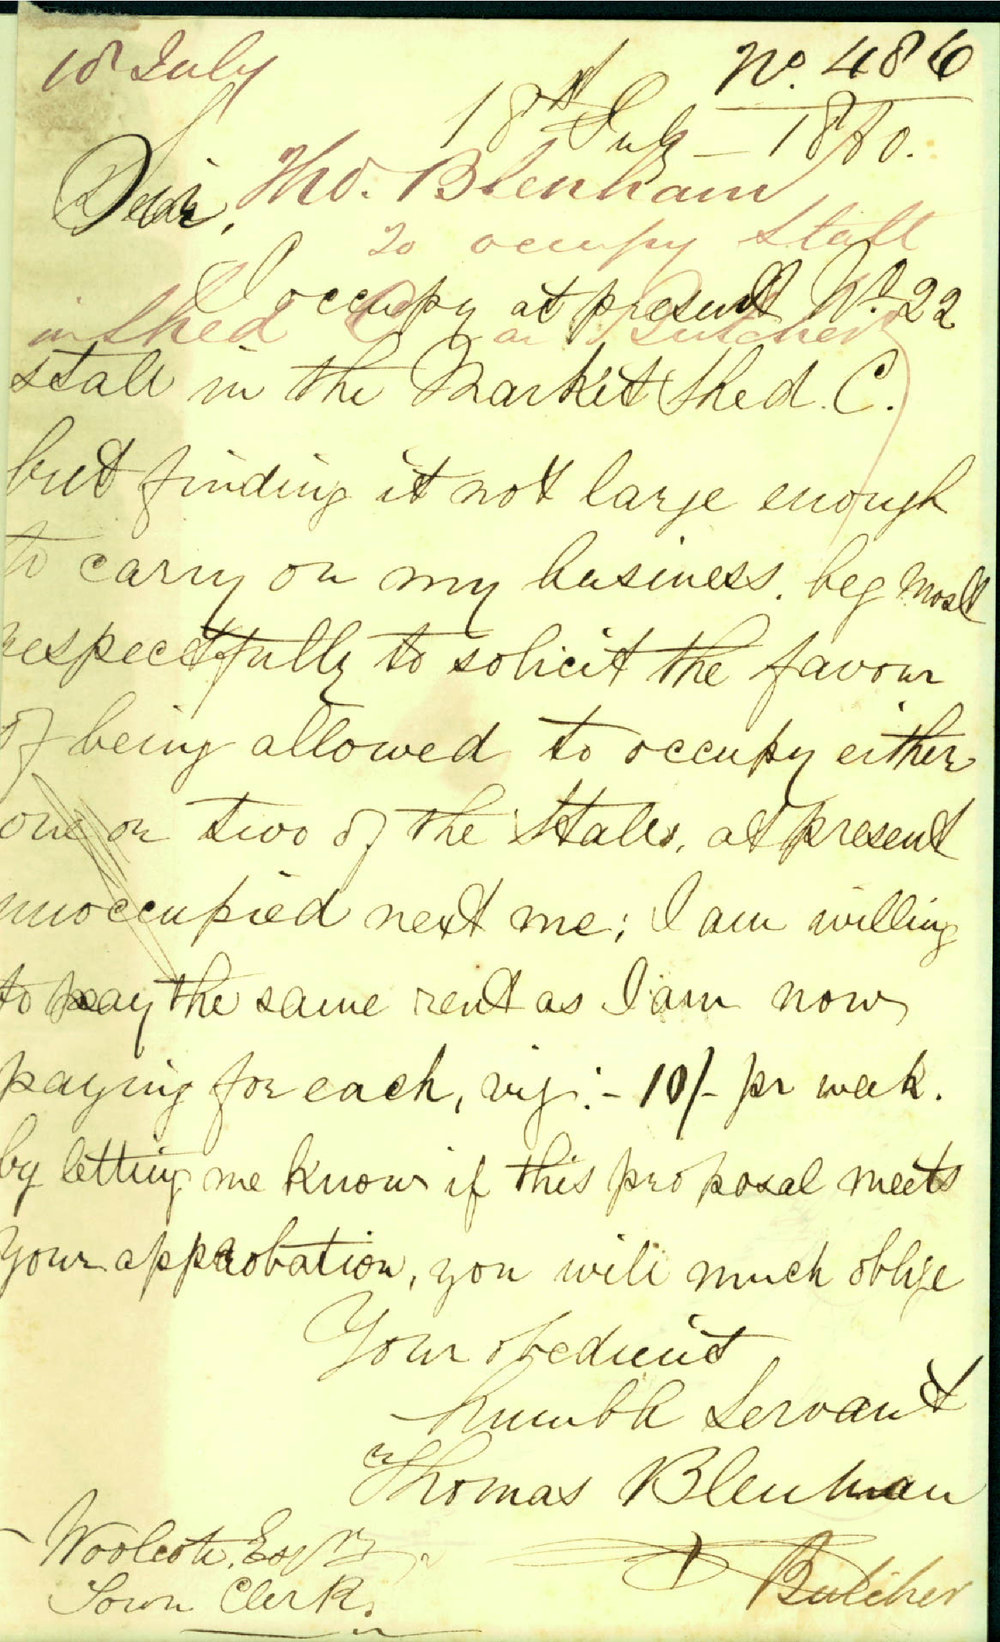 18 July
No. 486
18th July - 1860.
Dear Sir,
Tho. Blenham
To occupy Stall
in Shed C as Butcher
I occupy at present No. 22
stall in the Market Shed. C.
but finding it not large enough
to carry on my business. beg most
respectfully to solicit the favour
of being allowed to occupy either
one or two of the Stalls, at present
unoccupied next me; I am willing
to pay the same rent as I am now
paying for each, viz:- 10/- pr week.
by letting me know if this proposal meets
your approbation, you will much oblige
Your obedient
humble Servant
Thomas Blenham
Butcher
Woolcott Esqr
Town Clerk.